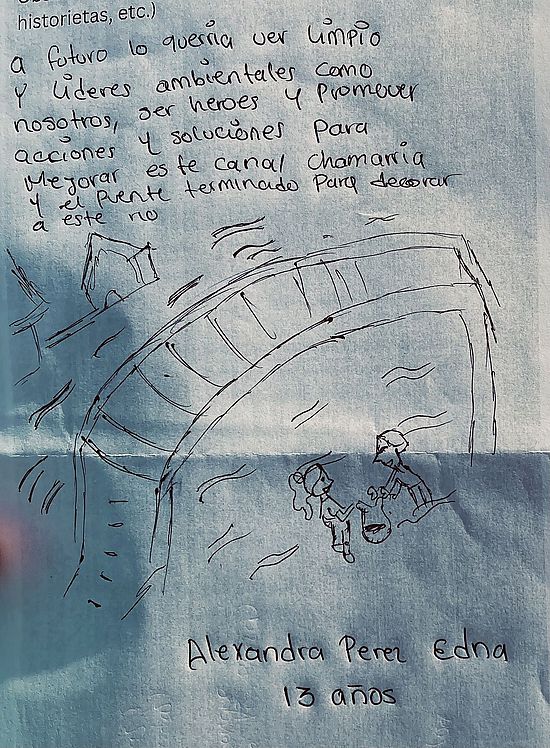 historietas, etc.)
a futuro lo querria ver limpio
y lideres ambientales como
nosotros, ser heroes y promover
acciones y soluciones para
Mejorar este canal chamarria
y el puente terminado para decorar
a este rio
Alexandra Perez Edna
13 años